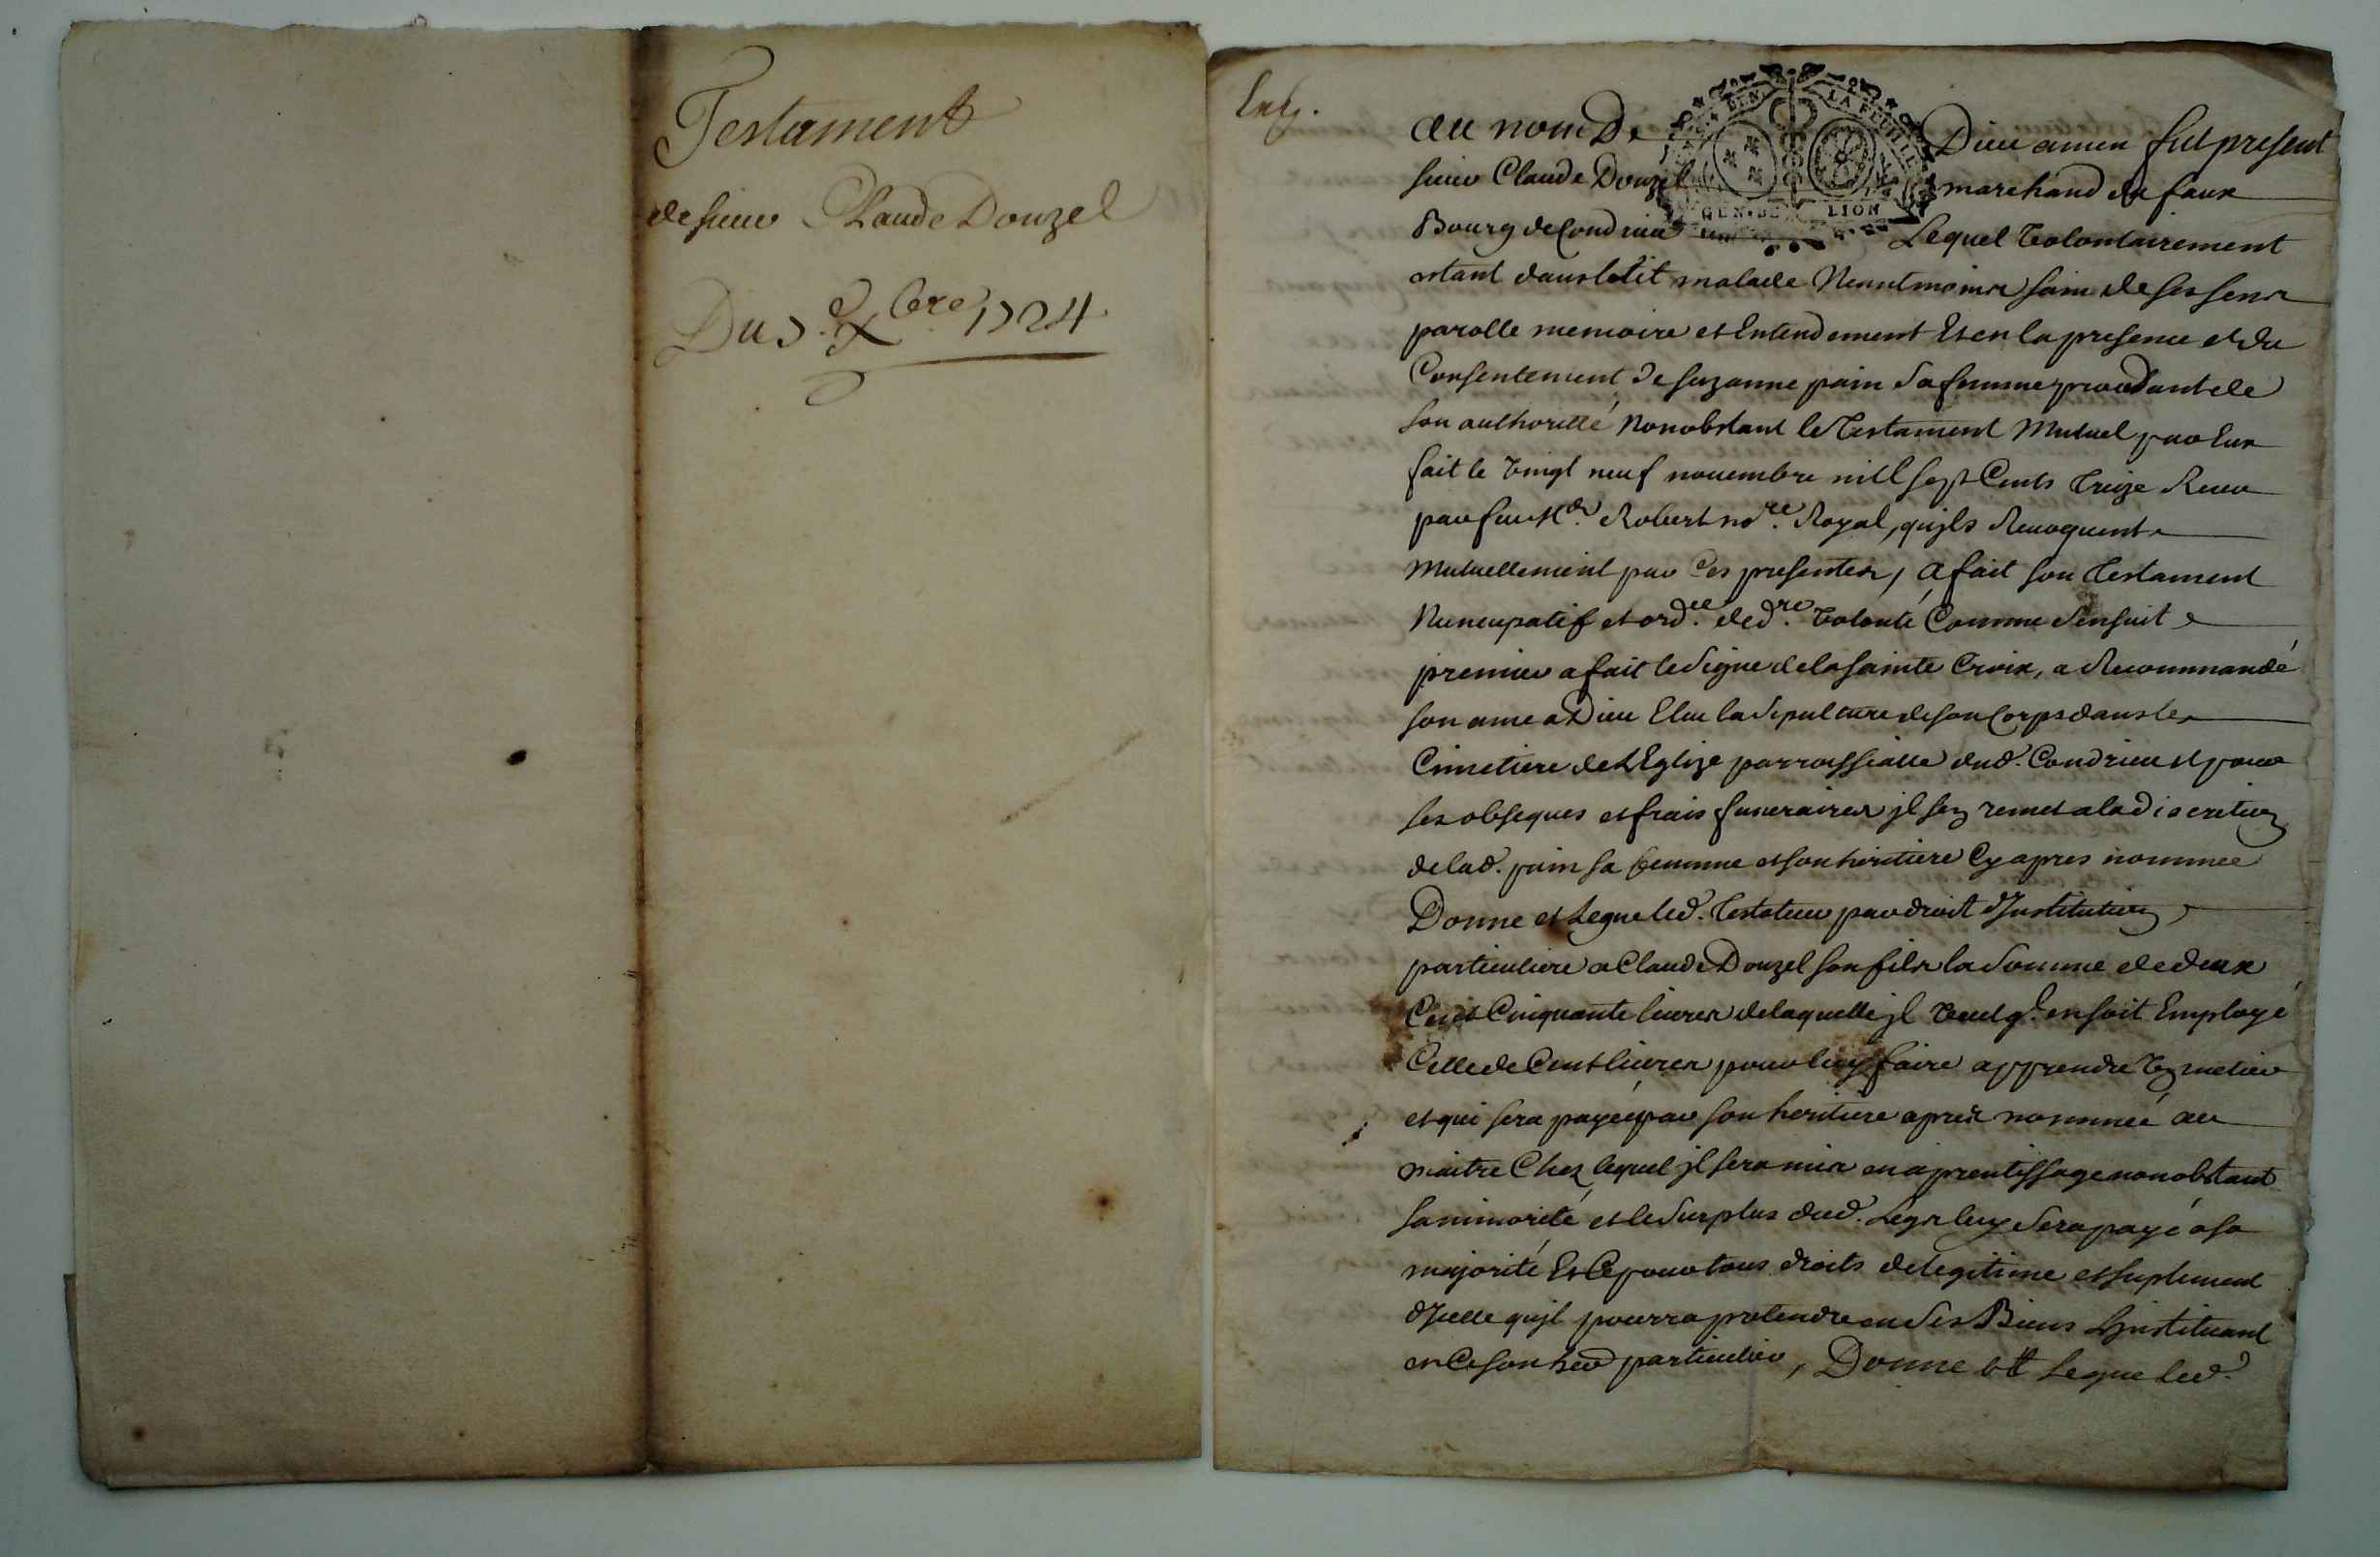 Testament
de sieur Claude Douzel
Du 7e Xbre 1724
au nom De Dieu amen fut present
sieur Claude Douzel marchand du faux
Bourg de Condrieu Lequel volontairement
estant dans le lit malade Neantmoins sain de ses sens
parolle memoire et Entendement Et en la presence et du
Consentement de suzanne pain sa femme procedant de
son authorité Nonobstant le Testament Mutuel par Eux
fait le vingt neuf novembre mill sept Cents Treize Receu
par feu Me. Robert nore. Royal, qu'jls Revoquent
Mutuellement par Ces presentes, a fait son testament
Nuncupatif et ordce. de dre. volonté Comme s'ensuit
premier a fait le signe de la sainte Croix, a Recommandé
son ame a Dieu Elue la sepulture de son Corps dans le
Cimetiere de L'Eglize parroissialle dud. Condrieu et pour
ses obseques et frais funeraires jl sen remet a la discretion
de lad. pain sa femme et son heritiere Cy apres nommee
Donne et Legue led. testateur par droit d'Institution
particuliere a Claude Douzel son fils la somme de deux
Cent Cinquante livres de laquelle jl veut q. en soit Employé
Celle de Cent livres pour luy faire apprendre un metier
et qui sera payée par son heritiere apres nommée au
maitre Chez lequel jl sera mis en aprentissage nonobstant
sa minorité et le surplus dud. Legs luy sera payé a sa
majorité Et Ce pour tous droits de legitime et suplement
d'Jcelle qu'jl pourra pretendre en ses Biens L'jnstituant
en Ce son herer particulier, Donne et Legue led.
GEN. DE LION
LA FEUILLE